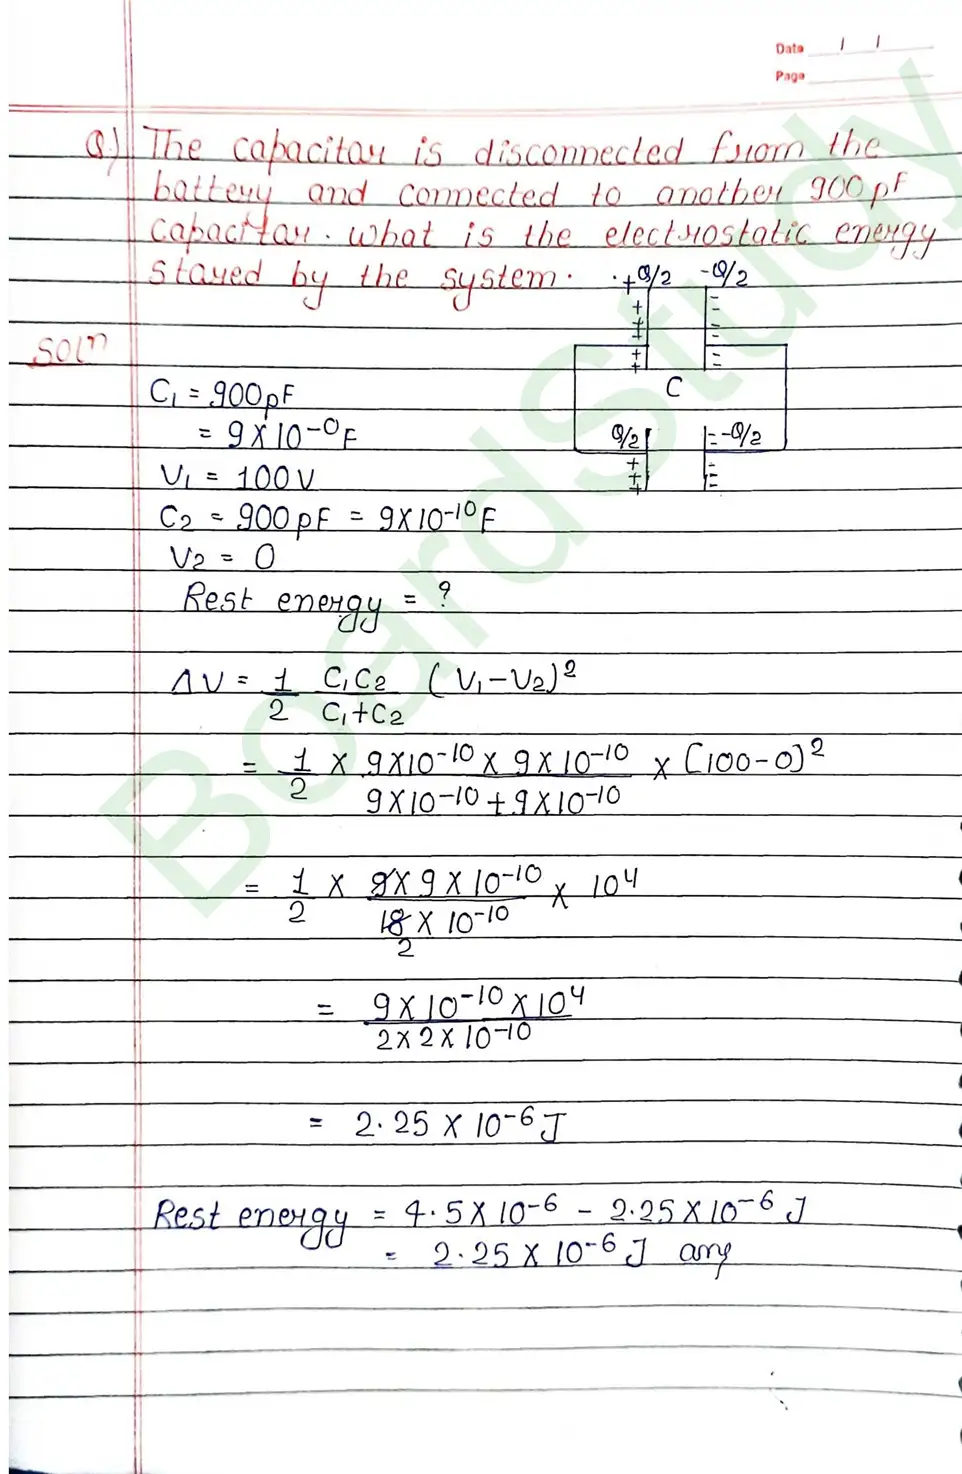 Date / /
Page
Q.) The capacitor is disconnected from the
battery and connected to another 900pF
capacitor. what is the electrostatic energy
stayed by the system.
+Q/2 -Q/2
Soln
C
Q/2 -Q/2
C₁ = 900pF
= 9×10⁻⁰F
V₁ = 100V
C₂ = 900pF = 9×10⁻¹⁰F
V₂ = 0
Rest energy = ?
ΔU = 1/2 C₁C₂/C₁+C₂ (V₁-V₂)²
= 1/2 × 9×10⁻¹⁰×9×10⁻¹⁰/9×10⁻¹⁰+9×10⁻¹⁰ × (100-0)²
= 1/2 × 9×9×10⁻¹⁰/18×10⁻¹⁰ × 10⁴
2
= 9×10⁻¹⁰×10⁴/2×2×10⁻¹⁰
= 2.25×10⁻⁶J
Rest energy = 4.5×10⁻⁶ - 2.25×10⁻⁶J
= 2.25×10⁻⁶J any
BoardStudy